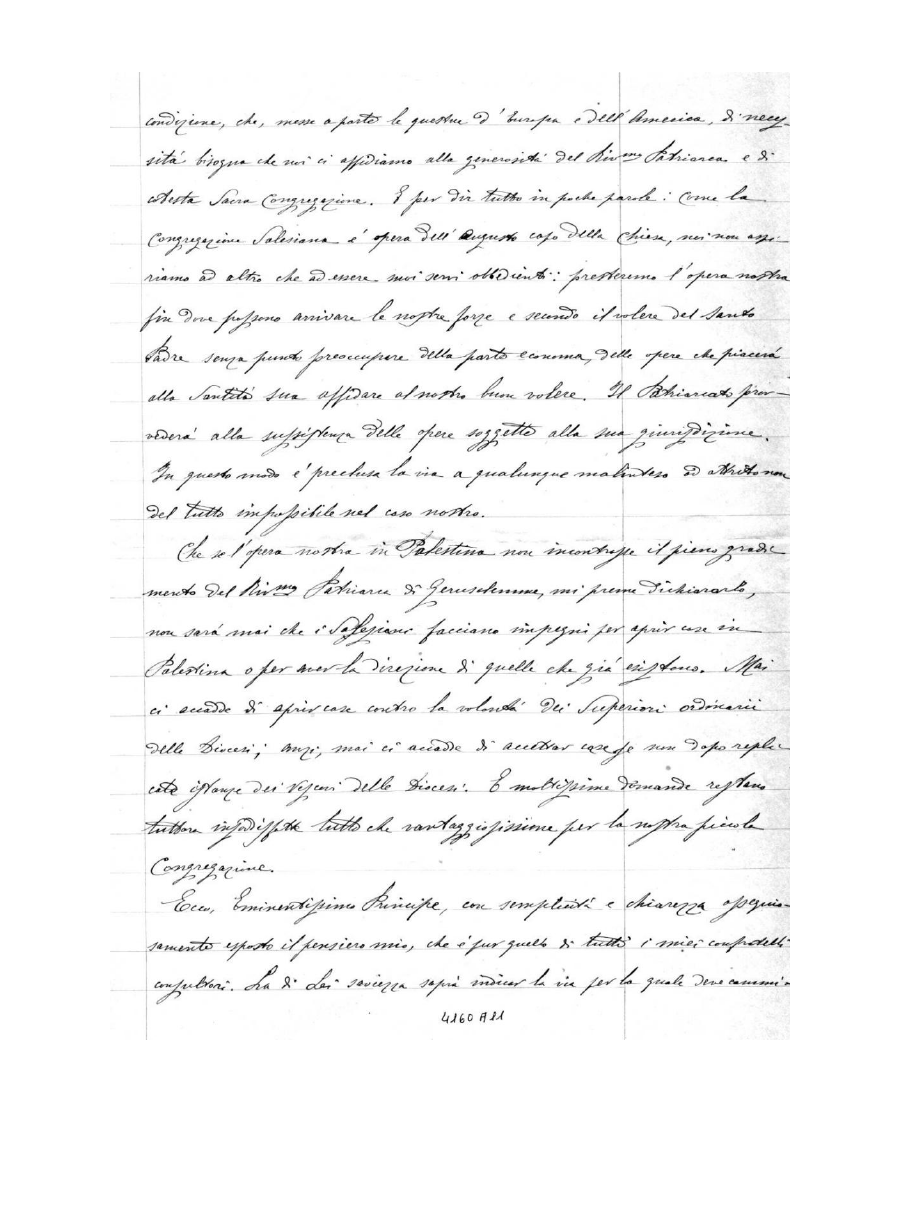 condizione, che, messe a parte le questue d'Europa e dell'America, di neces-
sità bisogna che noi ci affidiamo alla generosità del Rev.mo Patriarca e di
cotesta Sacra Congregazione. E per dir tutto in poche parole: come la
Congregazione Salesiana è opera dell'augusto capo della Chiesa, noi non aspi-
riamo ad altro che ad essere suoi servi obbedienti: presteremo l'opera nostra
fin dove possono arrivare le nostre forze e secondo il volere del Santo
Padre senza punto preoccupare della parte economa, delle opere che piacerà
alla Santità sua affidare al nostro buon volere. Il Patriarcato prov-
vederà alla sussistenza delle opere soggette alla sua giurisdizione.
In questo modo è preclusa la via a qualunque malinteso od attrito non
del tutto impossibile nel caso nostro.
Che se l'opera nostra in Palestina non incontrasse il pieno gradi-
mento del Rev.mo Patriarca di Gerusalemme, mi preme dichiararlo,
non sarà mai che i Salesiani facciano impegni per aprir case in
Palestina o per aver la direzione di quelle che già esistono. Mai
ci accadde di aprir case contro la volontà dei Superiori ordinarii
delle Diocesi; anzi, mai ci accadde di accettar case se non dopo repli-
cate istanze dei Vescovi delle Diocesi. E moltissime domande restano
tuttora insodisfatte tutto che vantaggiosissime per la nostra piccola
Congregazione.
Ecco, Eminentissimo Principe, con semplicità e chiarezza ossequio-
samente esposto il pensiero mio, che è pur quello di tutti i miei confratelli
consultori. La di Lei saviezza saprà indicar la via per la quale deve cammi-
4160 A11